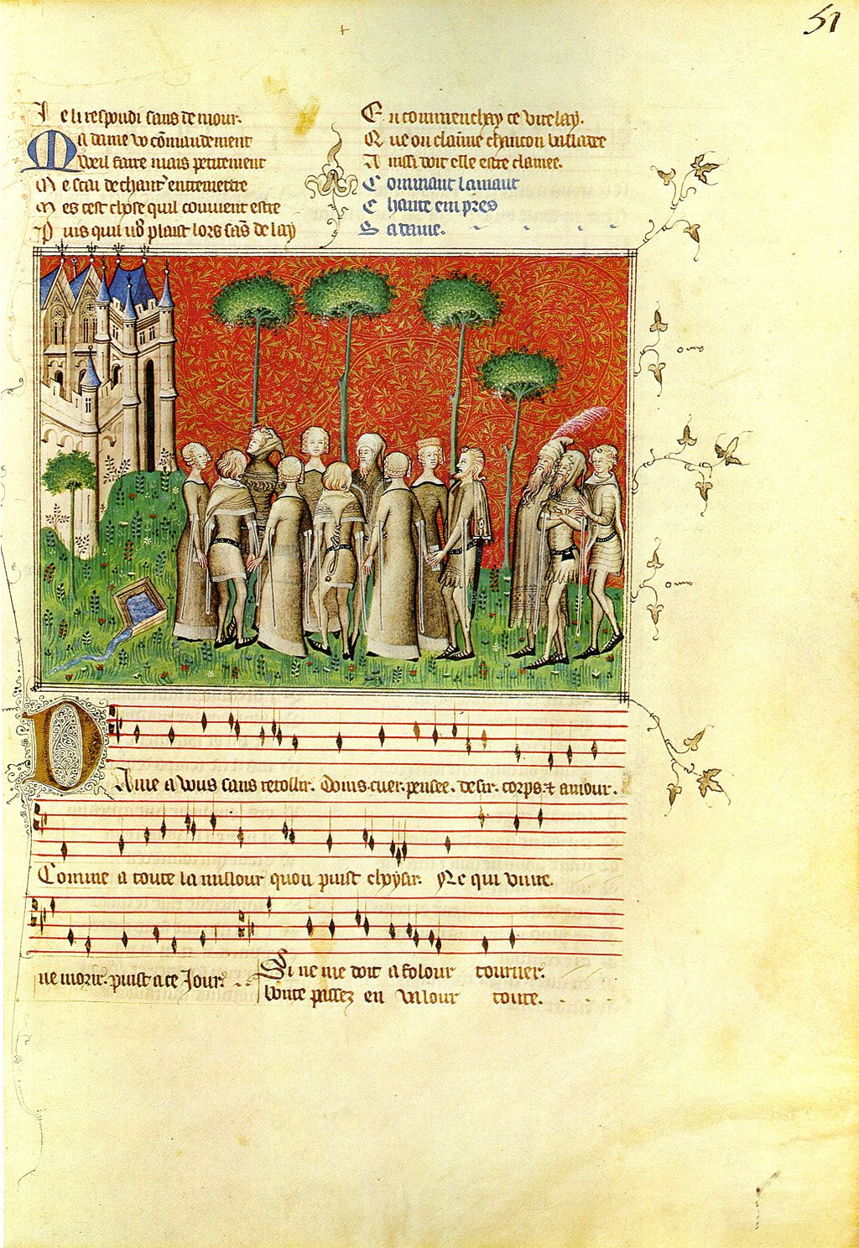 51
Je li respondi sans demour.
Ma dame vo cōmandement
Weil faire mais petitement
Me scai de chant entremettre
Mes cest chose quil couuient estre
Puis quil vo9 plaist lors sās delay
En commenchay ce virelay.
Que on claime chancon
Ainssi doit elle estre clamee.
Commant lamant
Chante empres
Sa dame.
Dame a vous sans retollir. Doins cuer. pensee. desir. corps. ⁊ amour.
Comme a toute la millour quon puist choysir. Ne qui viure.
ne morir. puist a ce jour.
Si ne me doit a folour tourner.
bonte passez en valour toute.